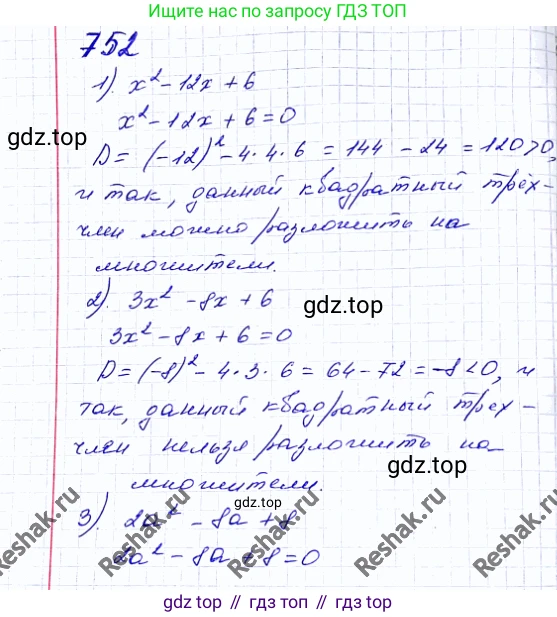 Ищите нас по запросу ГДЗ ТОП
752
1). x² - 12x + 6
x² - 12x + 6 = 0
gdz.top
D = (-12)² - 4 · 4 · 6 = 144 - 24 = 120 > 0,
и так, данный квадратный трёх-
член можно разложить на
множители.
2). 3x² - 8x + 6
gdz.top
3x² - 8x + 6 = 0
D = (-8)² - 4 · 3 · 6 = 64 - 72 = -8 < 0, и
так, данный квадратный трех-
член нельзя разложить на
gdz.top
множители.
3). 2a² - 8a + 8
gdz.top
2a² - 8a + 8 = 0
Reshak.ru
Reshak.ru
Reshak.ru
Reshak.ru
gdz top // гдз топ // gdz.top